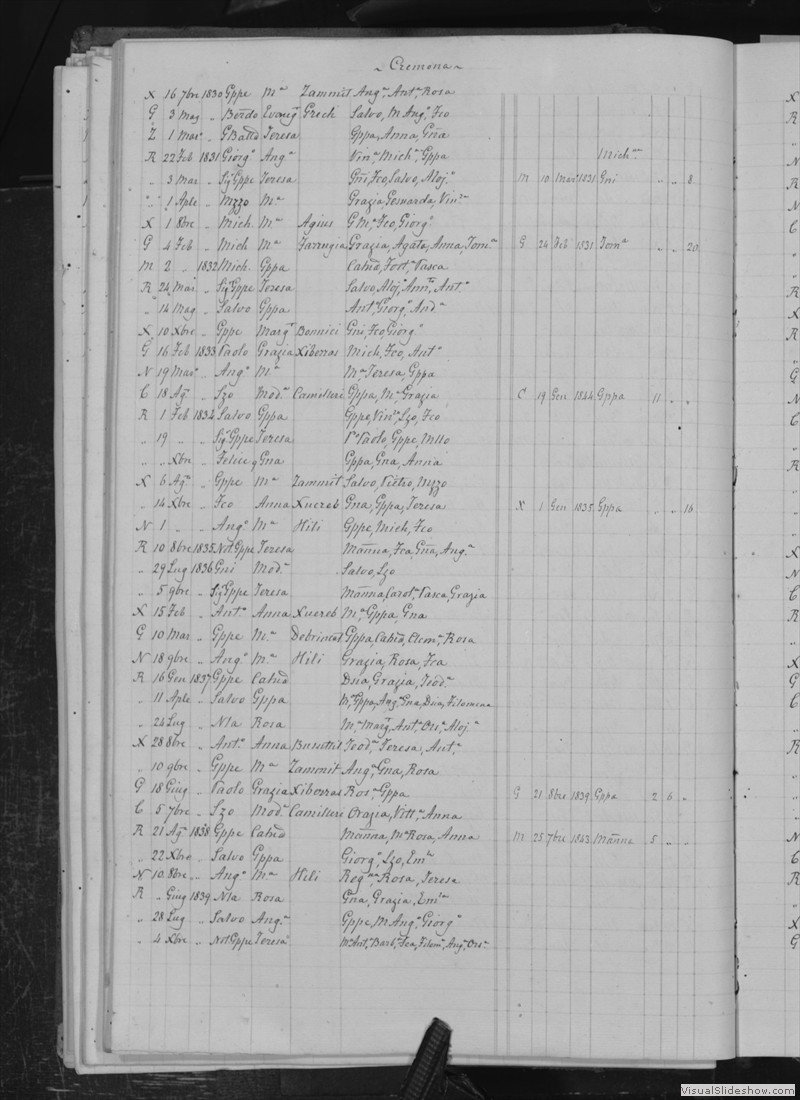 ~ Cremona ~
X 16 7bre 1830 Gppe Ma Zammit Anga, Anta, Rosa
G 3 Mag " Bordo Evangta Grech Salvo, M Anga, Fco
Z 1 Maro " GBatta Teresa Gppa, Anna, Gña
R 22 Feb 1831 Giorgo Anga Vina, Micha, Gppa Micha
" 3 Mar " Sigr Gppe Teresa Gni, Fco, Salvo, Aloja M 10 Mar 1831 Gni " " 8
" 1 Aple " Mzzo Ma Grazia, Vino
X 1 8bre " Mich Ma Agius G Ma, Fco, Giorgo
G 4 Feb " Mich Ma Farrugia Grazia, Agata, Anna, Toma G 24 Feb 1831 Toma " " 20
M 2 " 1832 Mich Gppa Catña, Fort, Pasca
R 24 Mar " Sigr Gppe Teresa Salvo, Aloja, Anta
" 14 Mag " Salvo Gppa Anta, Giorgo, Anda
X 10 Xbre " Gppe Marga Bonnici Gni, Fco, Giorgo
G 16 Feb 1833 Paolo Grazia Xiberras Mich, Fco, Anto
N 19 Maro " Ango Ma Ma Teresa, Gppa
C 18 Ago " Lzo Moda Camilleri Gppa, Ma, Grazia C 19 Gen 1844 Gppa 11 " "
R 1 Feb 1834 Salvo Gppa Gppe, Vino, Lzo, Fco
" 19 " " Sigr Gppe Teresa Paolo, Gppe, Mllo
" " Xbre " Felice Gna Gppa, Gna, Anna
X 6 Ago " Gppe Ma Zammit Salvo, Pietro, Mzzo
" 14 Xbre " Fco Anna Xuereb Gna, Gppa, Teresa X 1 Gen 1835 Gppa " " 16
N 1 " " Ango Ma Hili Gppe, Mich, Fco
R 10 8bre 1835 Not Gppe Teresa Mañna, Fca, Gña, Anga
" 29 Lug 1836 Gni Moda Salvo, Lzo
" 5 9bre " Sigr Gppe Teresa Mañna, Carota, Pasca, Grazia
X 15 Feb " Anto Anna Xuereb Ma, Gppa, Gna
G 10 Mar " Gppe Ma Debrincat Gppa, Catña, Clema, Rosa
N 18 9bre " Ango Ma Hili Grazia, Rosa, Fca
R 16 Gen 1837 Gppe Catña Dna, Grazia, Teoda
" 11 Aple " Salvo Gppa Ma, Gppa, Anga, Gna, Dna, Filomena
" 24 Lug " Nla Rosa Ma, Marga, Anta, Orsa, Aloja
X 28 8bre " Anto Anna Busuttil Teoda, Teresa, Anta
" 10 9bre " Gppe Ma Zammit Anga, Gna, Rosa
G 18 Giug " Paolo Grazia Xiberras Rosa, Gppa G 21 8bre 1839 Gppa 2 6 "
C 5 7bre " Lzo Moda Camilleri Orazia, Vitta, Anna
R 21 Ago 1838 Gppe Catña Mañna, Ma, Rosa, Anna M 25 7bre 1843 Mañna 5 " "
" 22 Xbre " Salvo Gppa Giorgo, Lzo, Eml
N 10 8bre " Ango Ma Hili Rega, Rosa, Teresa
R " Giug 1839 Nla Rosa Gna, Grazia, Emla
" 28 Lug " Salvo Anga Gppe, M Anga, Giorgo
" 4 Xbre " Not Gppe Teresa M Anta, Barba, Fca, Filoma, Anga, Orsa
VisualSlideshow.com